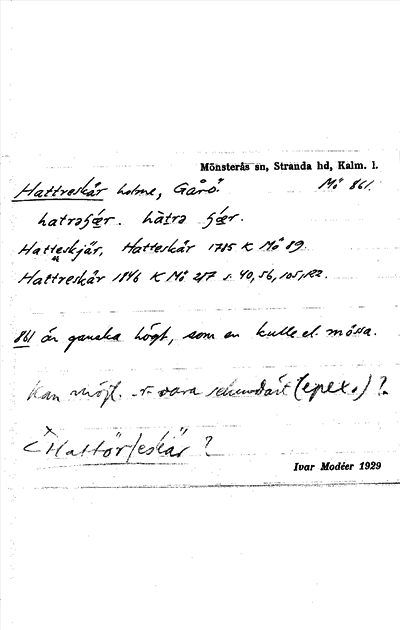 Mönsterås sn, Stranda hd, Kalm. l.
Hattreskär holme, Gårö. Mö 861.
Hatteskjär, Hatteskär 1785 K Mö 89.
Hattreskär 1846 K Mö 217 s. 40, 56, 105, 122.
861 är ganska högt, som en kulle el. mössa.
Kan möjl. -r- vara sekundärt (epex.)?
< *Hattör/eskär ?
Ivar Modéer 1929